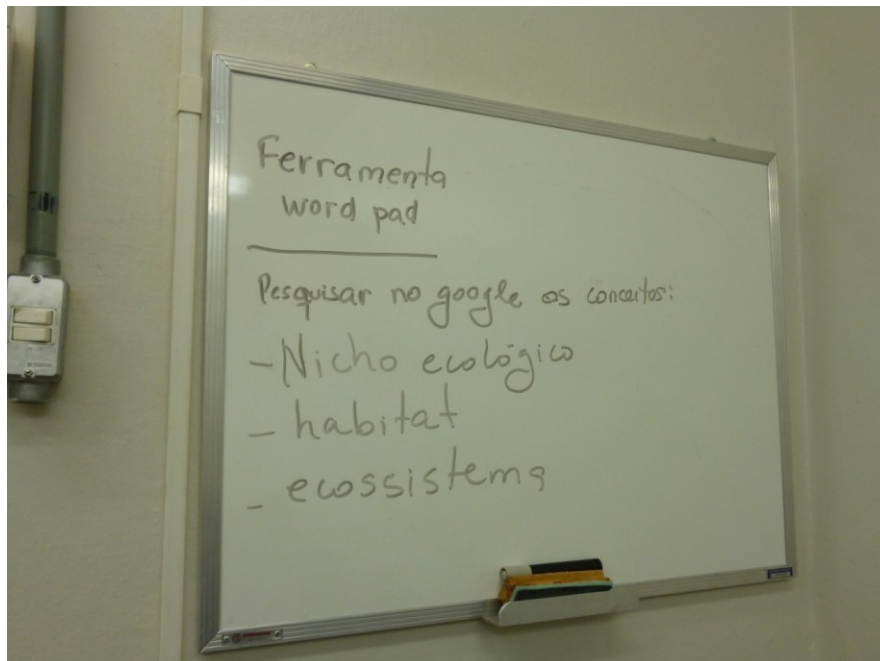 Ferramenta
word pad
Pesquisar no google os conceitos:
- Nicho ecológico
- habitat
- ecossistema